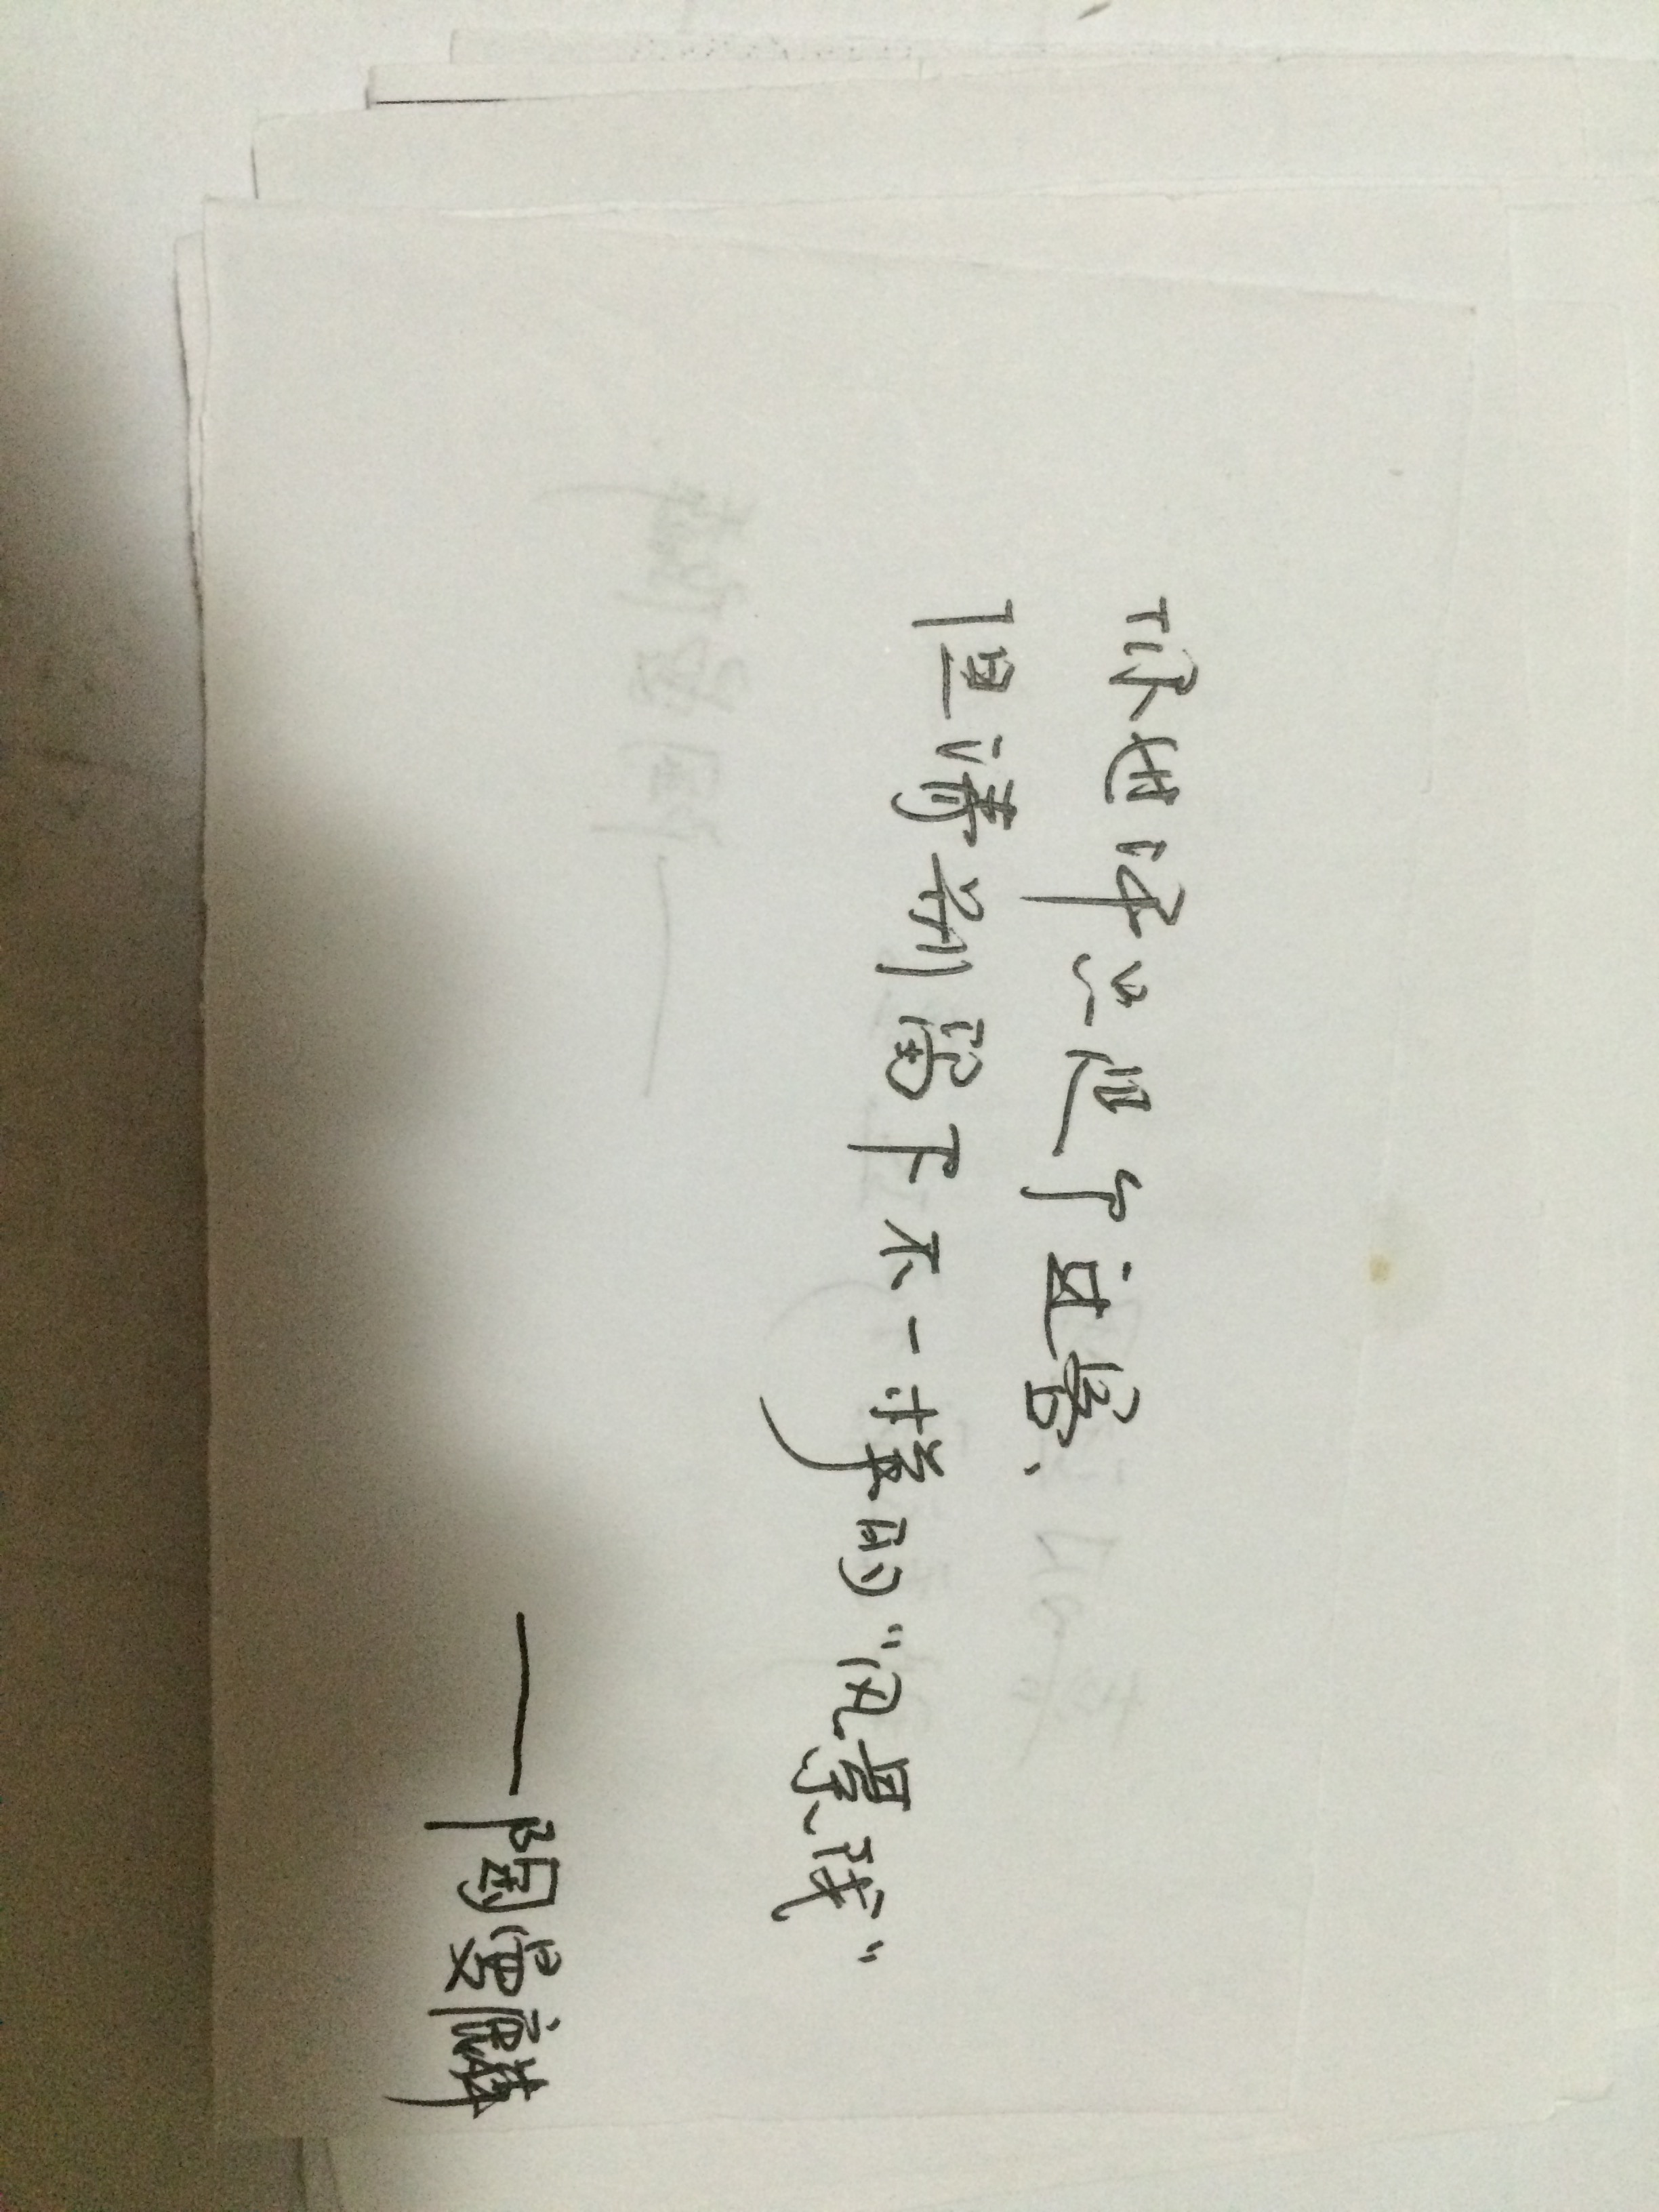 你也许只是个过客、
但请别留下不一样的“风景线”
——陶雯麟